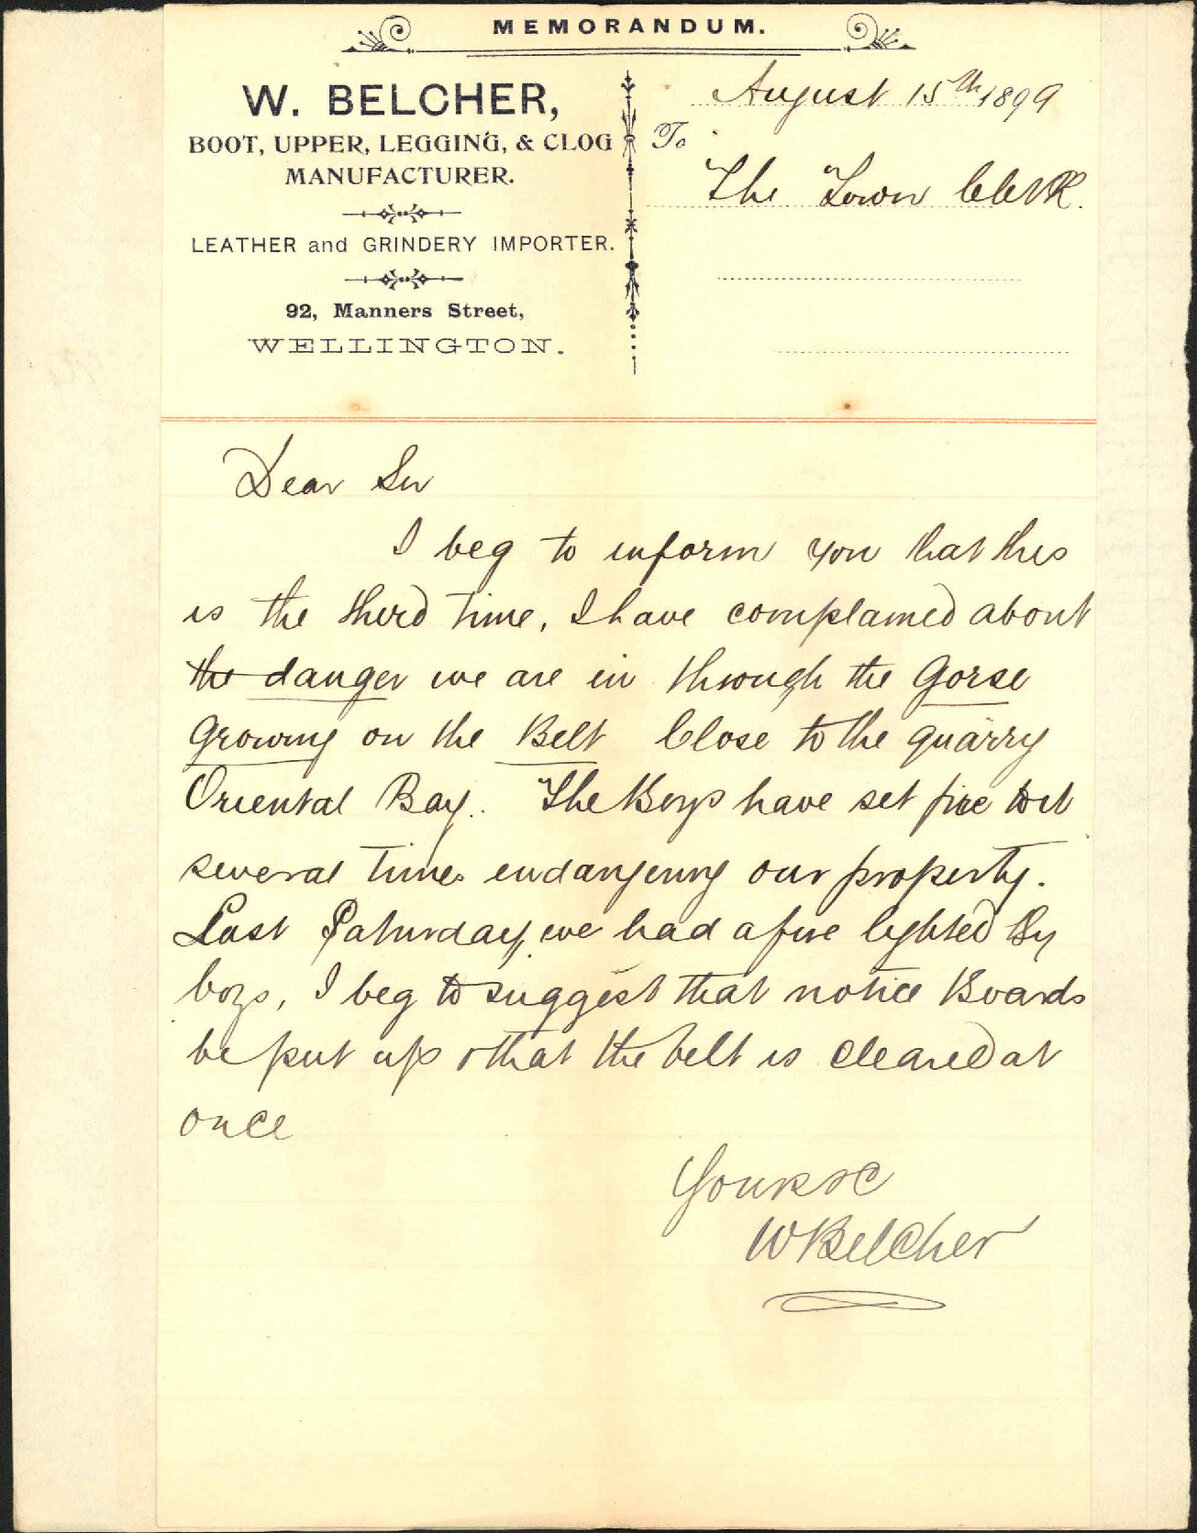 MEMORANDUM.
W. BELCHER,
BOOT, UPPER, LEGGING, & CLOG
MANUFACTURER.
LEATHER and GRINDERY IMPORTER.
92, Manners Street,
WELLINGTON.
August 15th 1899
To
The Town Clerk.
Dear Sir
I beg to inform you that this
is the third time, I have complained about
the danger we are in through the Gorse
growing on the Belt Close to the quarry
Oriental Bay. The Boys have set fire to it
several times endangering our property.
Last Saturday, we had a fire lighted By
boys, I beg to suggest that notice Boards
be put up & that the belt is cleared at
once
Yours &c
W Belcher